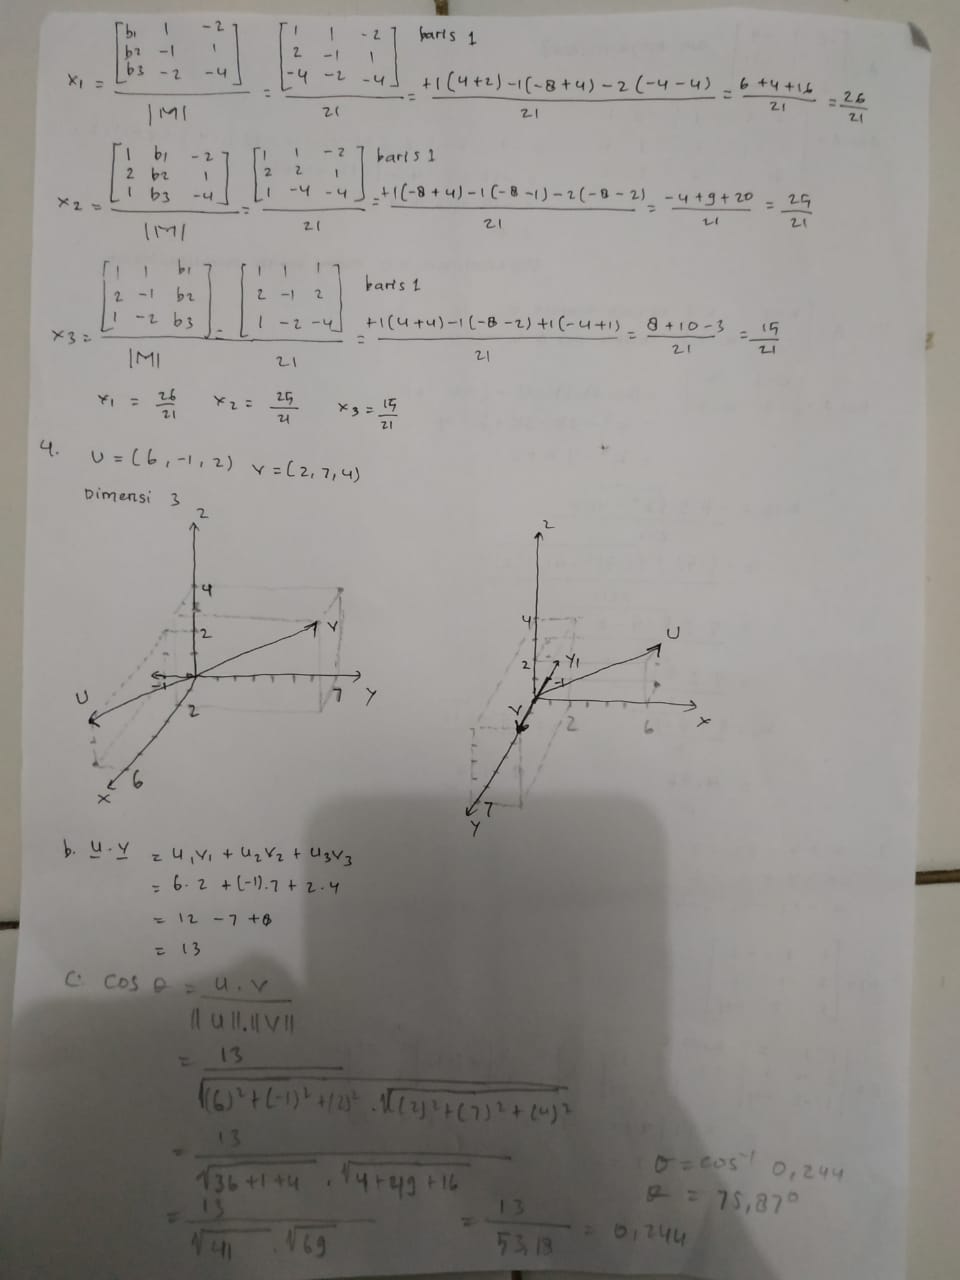 x1 = [b1 1 -2 / b2 -1 1 / b3 -2 -4] / |M| = [1 1 -2 / 2 -1 1 / -4 -2 -4] / 21 baris 1 = +1(4+2) -1(-8+4) -2(-4-4) / 21 = 6+4+16 / 21 = 26/21
x2 = [1 b1 -2 / 2 b2 1 / 1 b3 -4] / |M| = [1 1 -2 / 2 2 1 / 1 -4 -4] / 21 baris 1 = +1(-8+4) -1(-8-1) -2(-8-2) / 21 = -4+9+20 / 21 = 25/21
x3 = [1 1 b1 / 2 -1 b2 / 1 -2 b3] / |M| = [1 1 1 / 2 -1 2 / 1 -2 -4] / 21 baris 1 = +1(4+4) -1(-8-2) +1(-4+1) / 21 = 8+10-3 / 21 = 15/21
x1 = 26/21 x2 = 25/21 x3 = 15/21
4. U = (6, -1, 2) V = (2, 7, 4)
Dimensi 3
Z
4
2
V
-1
7
Y
U
2
6
X
Z
4
2
Y1
-1
U
V
2
6
X
7
Y
b. u . v = u1v1 + u2v2 + u3v3
= 6. 2 + (-1).7 + 2.4
= 12 - 7 + 8
= 13
C. cos θ = u.v / ||u||.||v||
= 13 / √(6)²+(-1)²+(2)² . √(2)²+(7)²+(4)²
= 13 / √36+1+4 . √4+49+16
= 13 / √41 . √69 = 13 / 53,18 = 0,244
θ = cos⁻¹ 0,244
θ = 75,87°